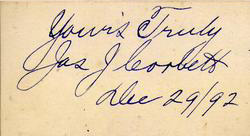 Yours Truly
Jas J Corbett
Dec 29/92